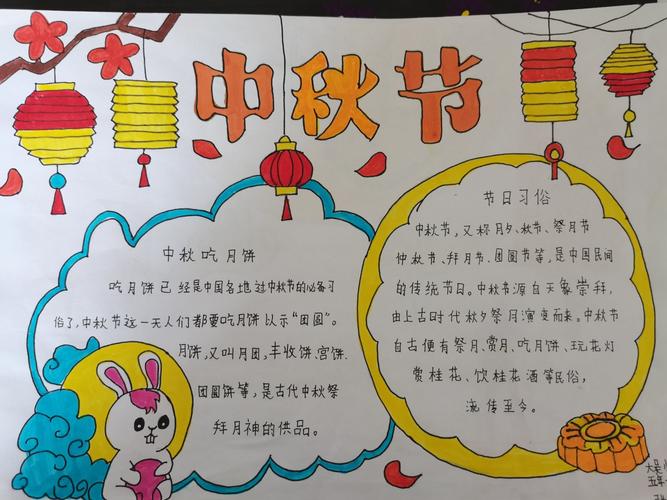 中秋节
中秋吃月饼
吃月饼已经是中国各地过中秋节的必备习
俗了,中秋节这一天人们都要吃月饼以示“团圆”。
月饼,又叫月团,丰收饼,宫饼.
团圆饼等,是古代中秋祭
拜月神的供品。
节日习俗
中秋节,又称月夕、秋节、祭月节
仲秋节、拜月节、团圆节等,是中国民间
的传统节日。中秋节源自天象崇拜,
由上古时代秋夕祭月演变而来。中秋节
自古便有祭月、赏月、吃月饼、玩花灯
赏桂花、饮桂花酒等民俗,
流传至今。
五年